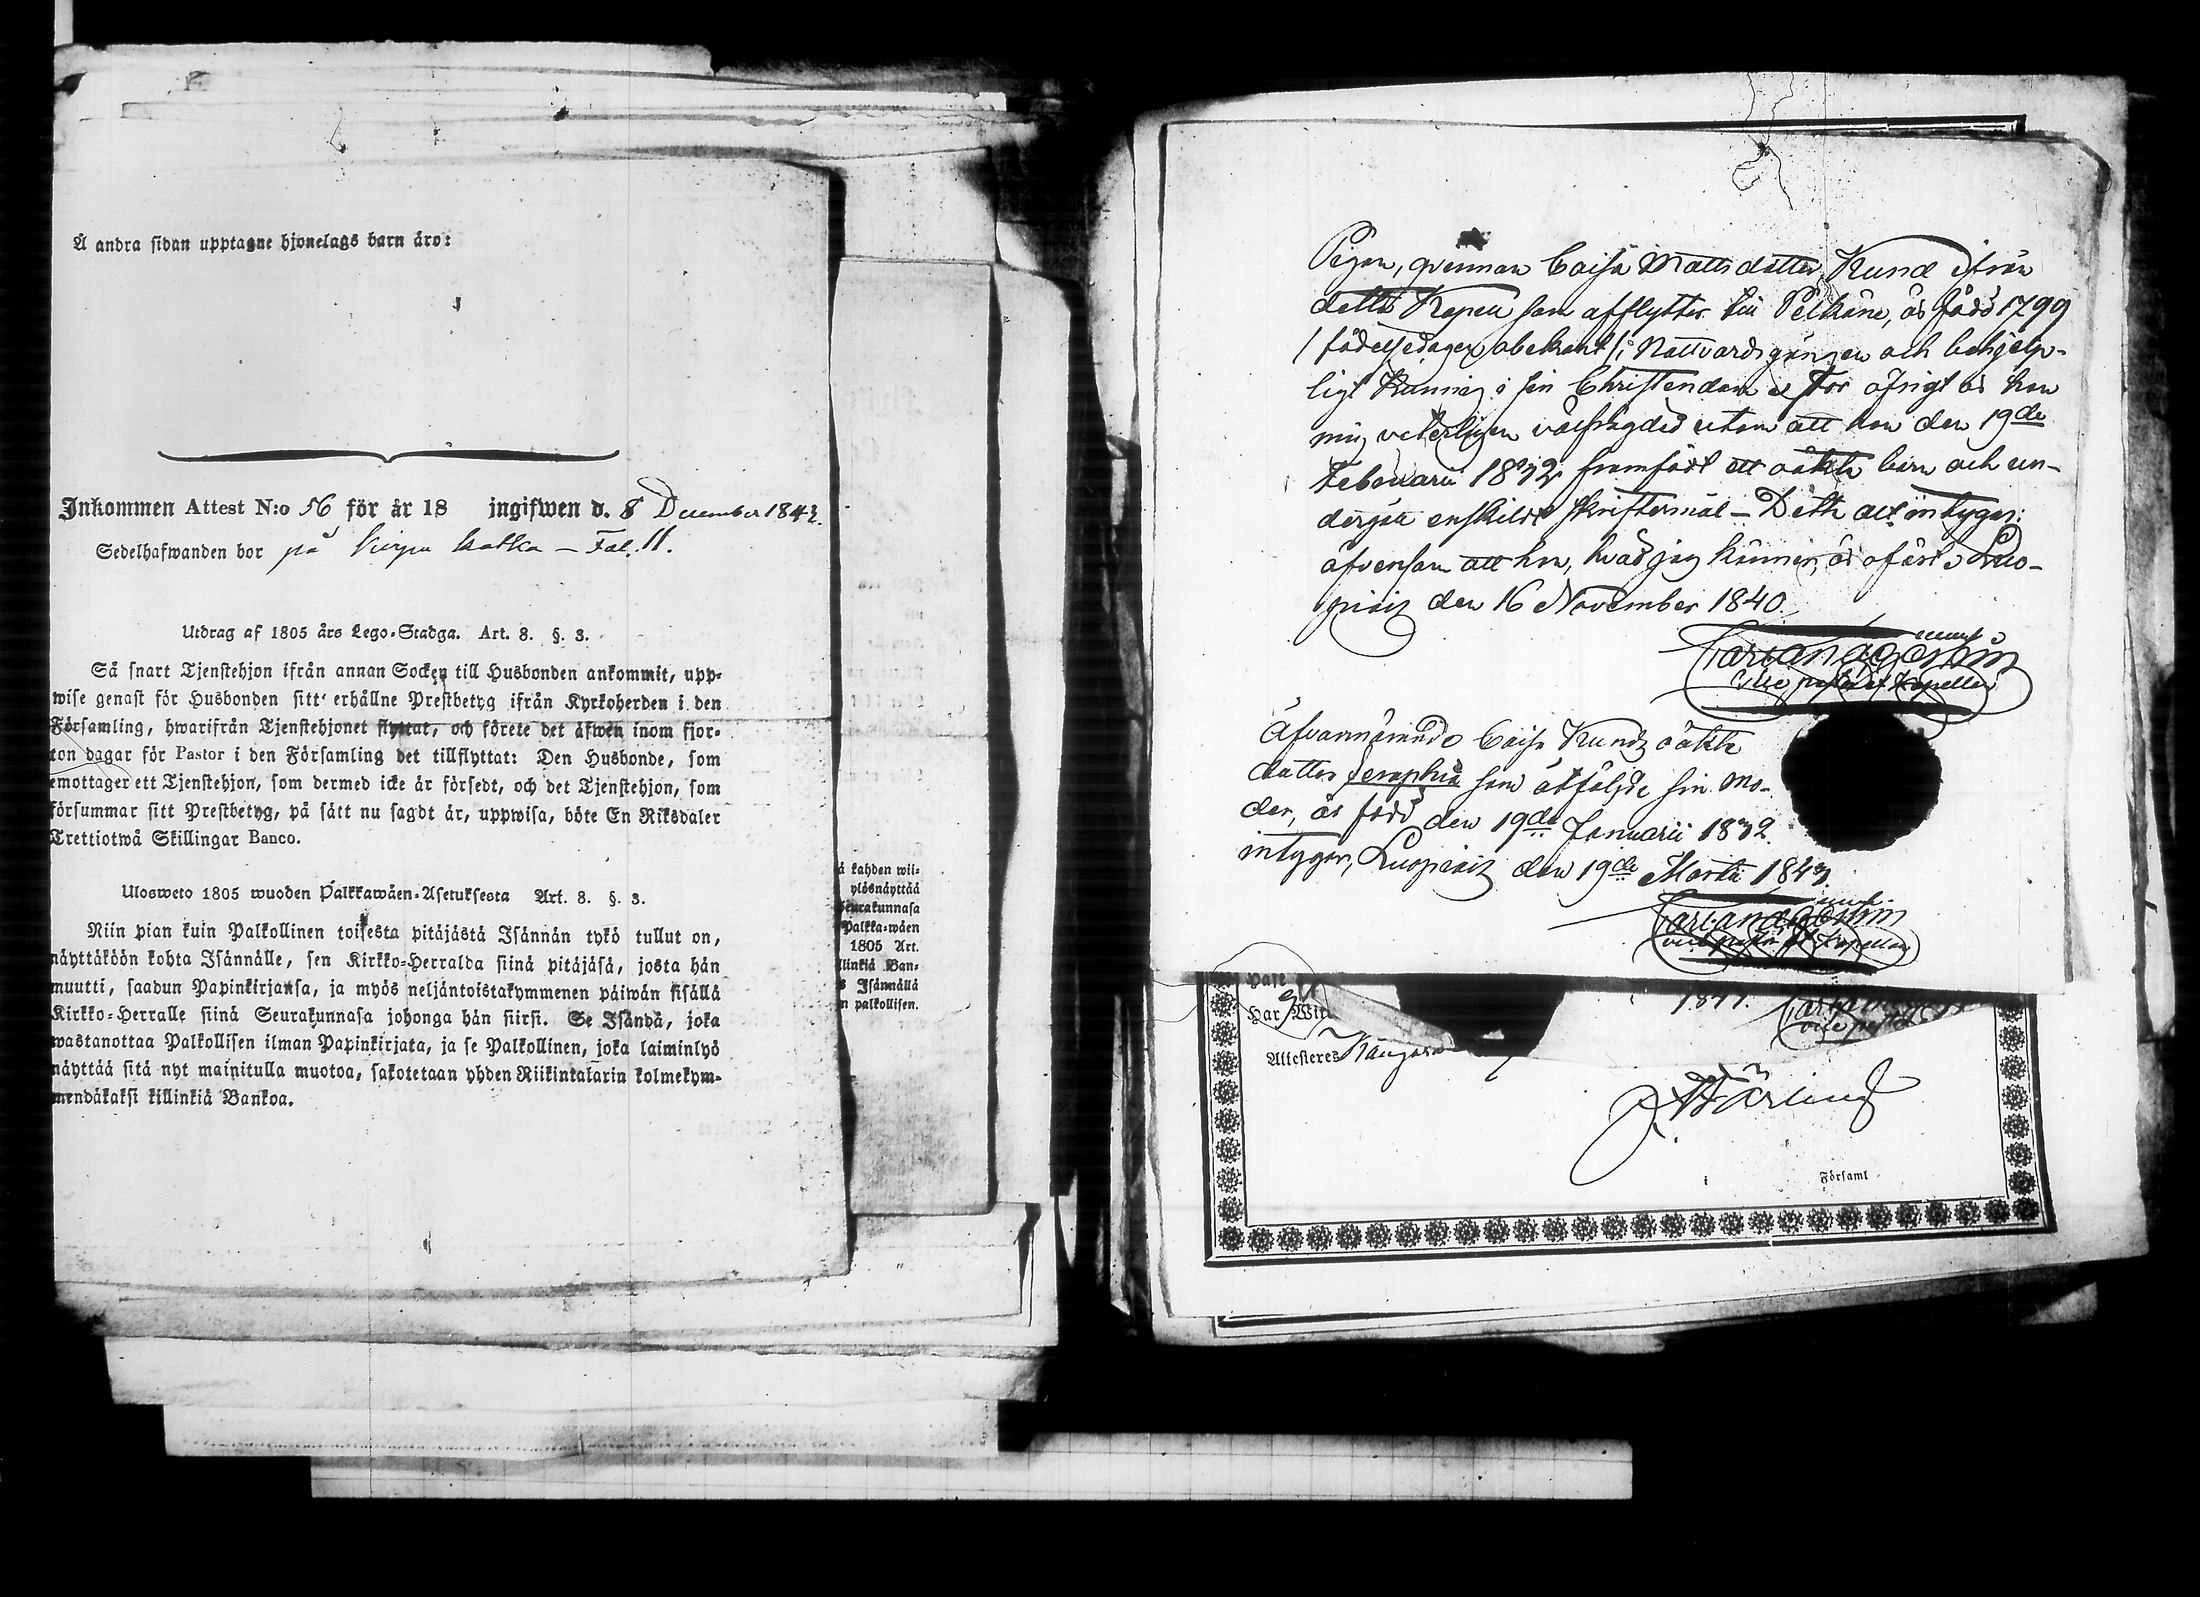 Å andra sidan upptagne hjonelags barn äro:
Inkommen Attest N:o 56 för år 18 ingifwen d. 8 December 1842.
Sedelhafwanden bor på Kirpu – Fol. 11.
Utdrag af 1805 års Lego-Stadga. Art. 8. §. 3.
Så snart Tjenstehjon ifrån annan Socken till Husbonden ankommit, upp-
wise genast för Husbonden sitt erhållne Prestbetyg ifrån Kyrkoherden i den
Församling, hwarifrån Tjenstehjonet flyttat, och förete det äfwen inom fjor-
ton dagar för Pastor i den Församling det tillflyttat: Den Husbonde, som
emottager ett Tjenstehjon, som dermed icke är försedt, och det Tjenstehjon, som
försummar sitt Prestbetyg, på sätt nu sagdt är, uppwisa, böte En Riksdaler
Trettiotwå Skillingar Banco.
Ulosweto 1805 wuoden Palkkawäen-Asetuksesta Art. 8. §. 3.
Niin pian kuin Palkollinen toisesta pitäjästä Isännän tykö tullut on,
näyttäköön kohta Isännälle, sen Kirkko-Herralda siinä pitäjäsä, josta hän
muutti, saadun Papinkirjansa, ja myös neljäntoistakymmenen päiwän sisällä
Kirkko-Herralle siinä Seurakunnasa johonga hän siirsi. Se Isändä, joka
wastanottaa Palkollisen ilman Papinkirjata, ja se Palkollinen, joka laiminlyö
näyttää sitä nyt mainitulla muotoa, sakotetaan yhden Riikintalarin kolmekym-
mendäkaksi killinkiä Bankoa.
ä kahden wii-
ylösnäyttää
Seurakunnasa
Palkka-wäen
1805 Art.
llinkiä Ban-
s Isännällä
n palkollisen.
Pigan, qvinnan Caisa Mattsdotter Kund ifrån
detta Kapell som afflyttar till Pelkäne, är född 1799
/födelsedagen obekant/; i Nattvardsgången och behjelp-
ligt kunnig i sin Christendom. För öfrigt är hon
mig veterligen välfrägdad utom att hon den 19de
Februarii 1832 framfödt ett oäkta barn och un-
dergått enskildt skriftermål – Detta att intygas:
äfvensom att hon, hvad jag känner, är ofäst. Luo-
piois den 16 November 1840.
vice pastor et Kapellan
Äfvannämnde Caisa Kunds oäkta
dotter Seraphia som åtföljde sin mo-
der, är född den 19de Januarii 1832
intygar, Luopiois den 19de Martii 1843.
vice pastor et Kapellan
Har Witt
1841.
vice past
Attesteres Kangasa
Församl